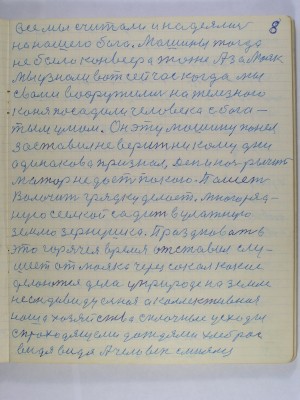 8
все мы считали и надеялись
на нашего бога. Машины тогда
не было конвеера тоже А за Маяк
мы узнали вот сейчас когда мы
свали вооружили на железного
коня посадили человека с бога-
тым умом. Он эту машину понял
заставил не верит никому дни
одинакова признал, День и ноч рычит
мотор не даёт покою. Пашет
Волочит грядку делает. Многоряд-
ную сеялкой садит в влажную
землю зернушка. Праздновать
это горячея время отставил слу-
шает от маяка через сокол какие
делаются дела у природе на земле
не индивидусеная а коллективная
наша хозяйства сплочные усходы
с проходящеми дождями хлеб рос
видя видя А человек смеяц